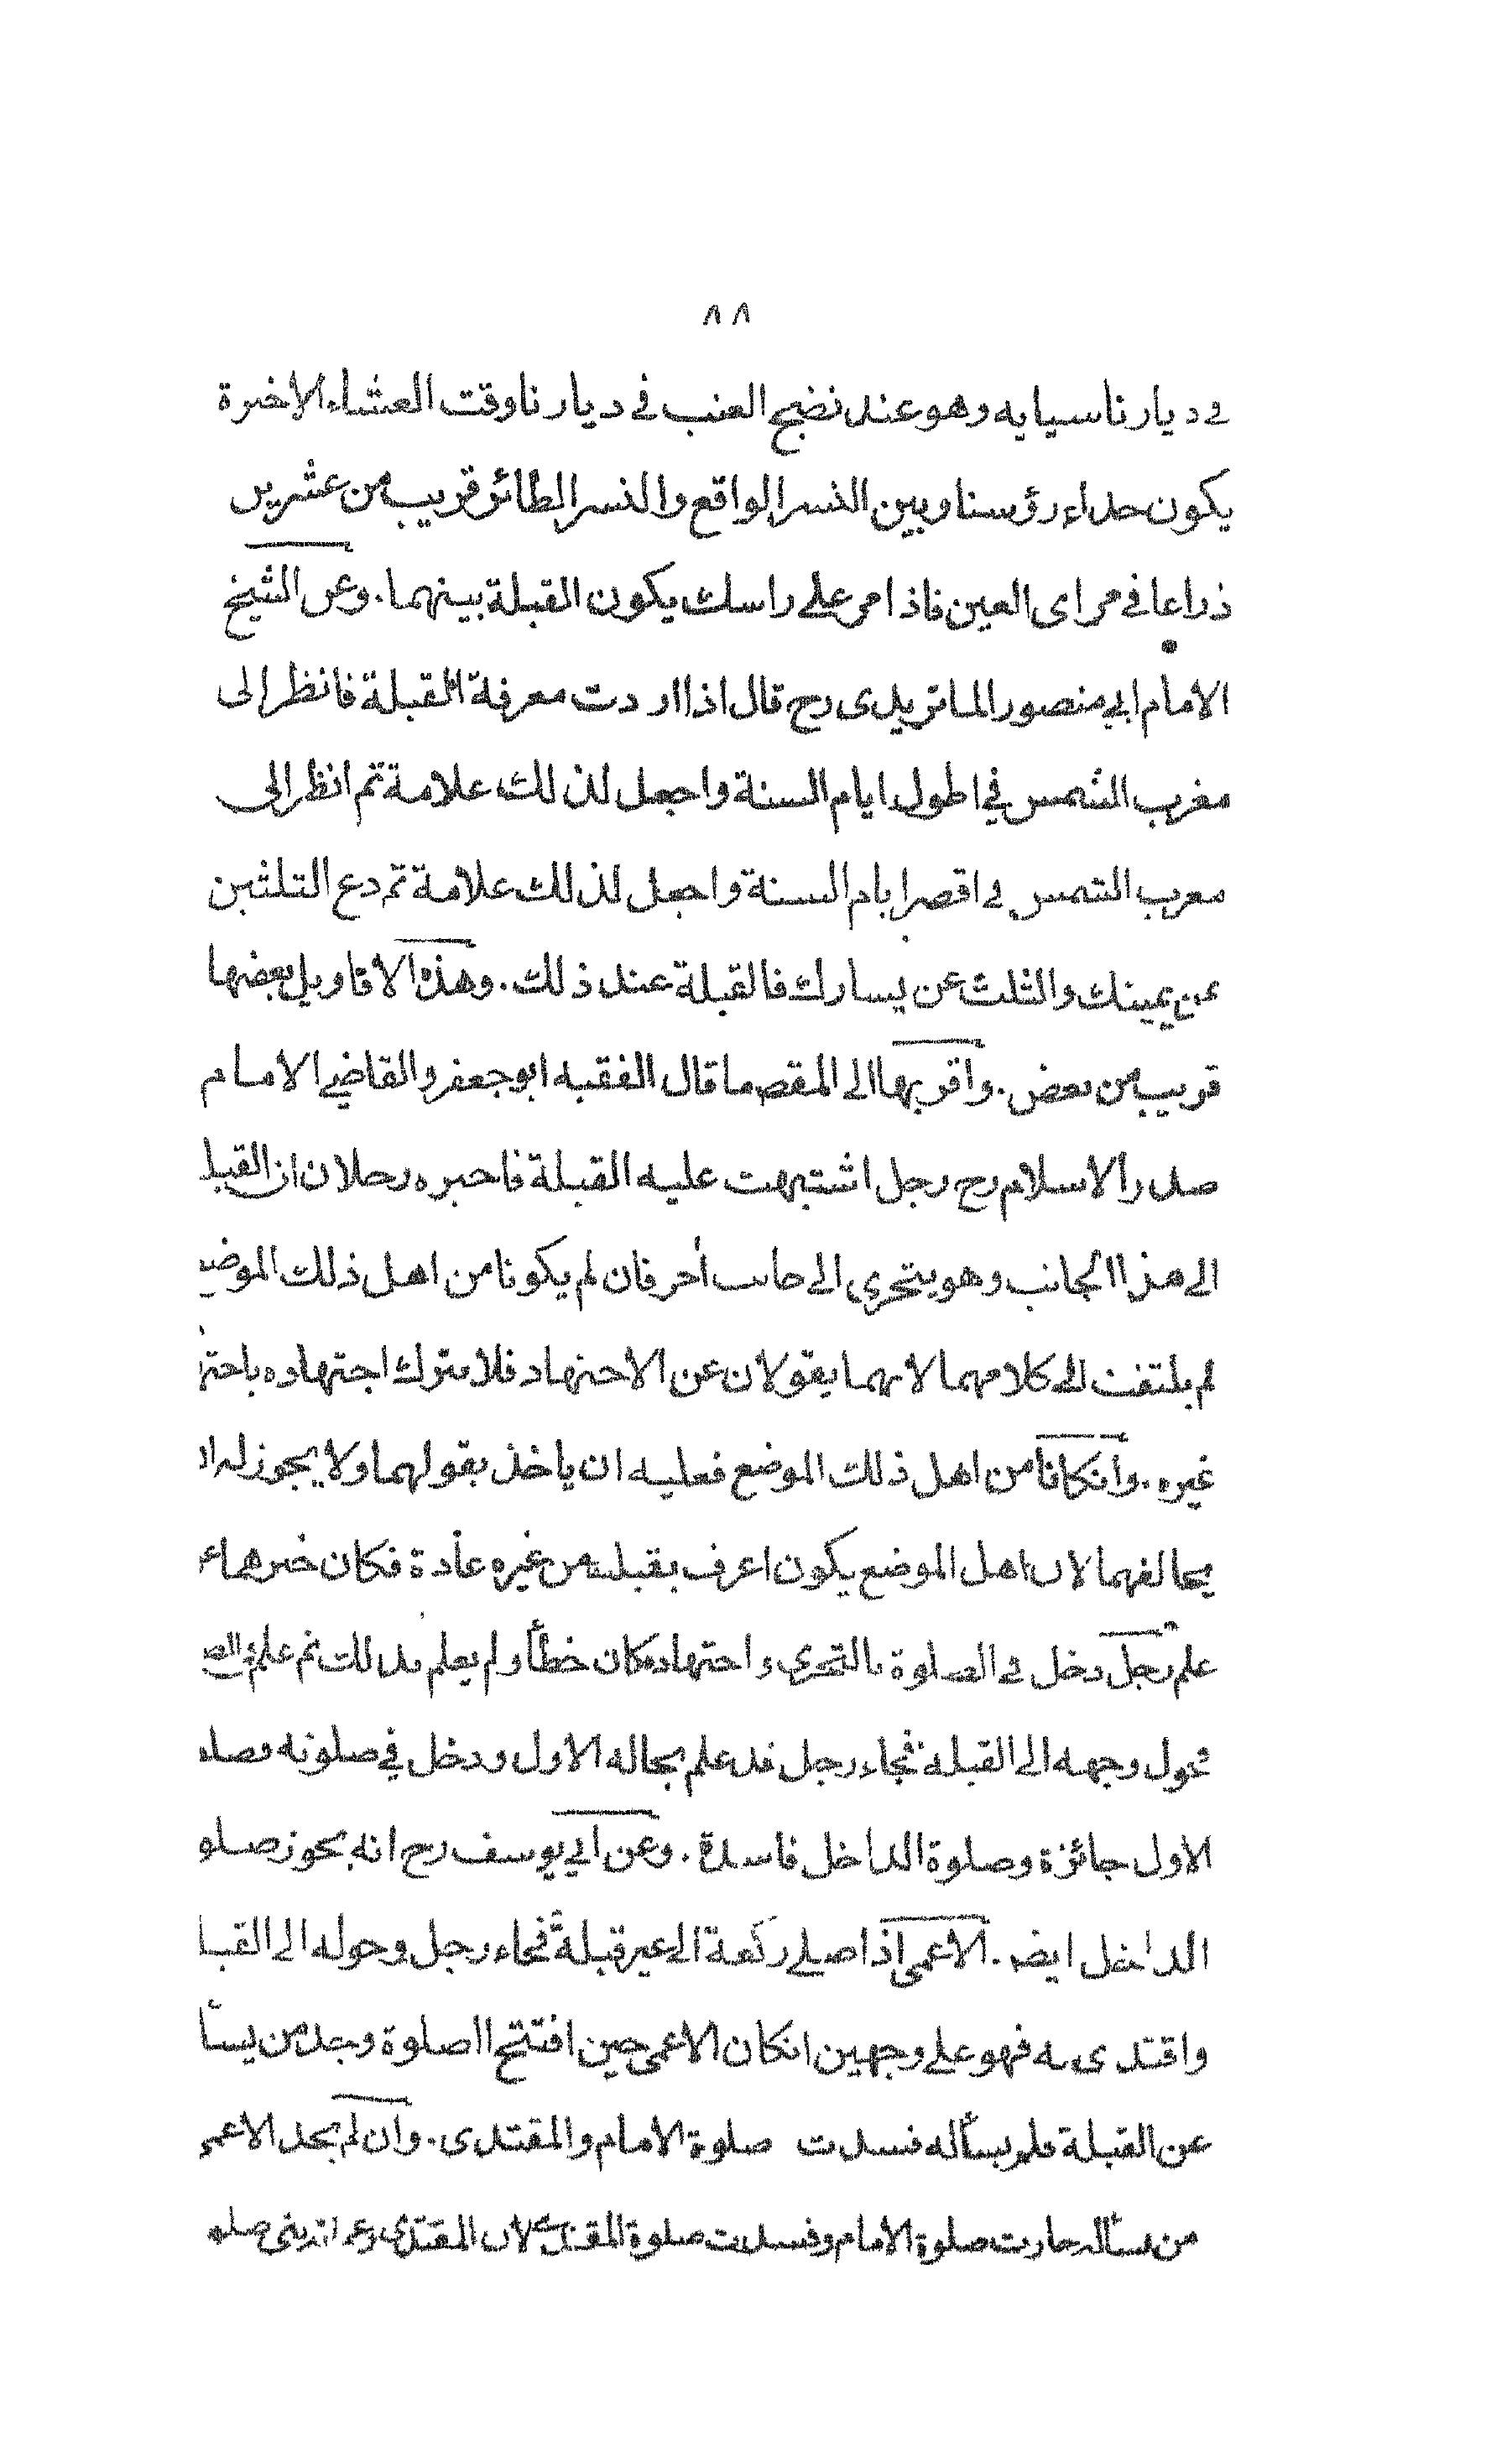 ٨٨
في ديارنا سيايه وهو عند نضج العنب في ديارنا وقت العشاء الاخيرة
يكون حذاء رؤسنا وبين النسر الواقع والنسر الطائر قريب من عشرين
ذراعا في مراى العين فاذا مر على راسك يكون القبلة بينهما . وعن الشيخ
الامام ابي منصور الماتريدى رح قال اذا اردت معرفة القبلة فانظر الى
مغرب الشمس في اطول ايام السنة واجعل لذلك علامة ثم انظر الى
مغرب الشمس في اقصر ايام السنة واجعل لذلك علامة ثم دع الثلثين
عن يمينك والثلث عن يسارك فالقبلة عند ذلك . وهذه الاقاويل بعضها
قريب من بعض . واقربها الى المقصد ما قال الفقيه ابو جعفر والقاضي الامام
صدر الاسلام رح رجل اشتبهت عليه القبلة فاخبره رجلان ان القبلة
الى هذا الجانب وهو يتحرى الى جانب أخر فان لم يكونا من اهل ذلك الموضع
لم يلتفت الى كلامهما لانهما يقولان عن الاجتهاد فلا يترك اجتهاده باجتهاد
غيره . وانكانا من اهل ذلك الموضع فعليه ان ياخذ بقولهما ولا يجوز له ان
يخالفهما لان اهل الموضع يكون اعرف بقبلته من غيره عادة فكان خبرهما عن
علم رجل دخل في الصلوة بالتحرى واجتهاده كان خطأ ولم يعلم بذلك ثم علم في الصلوة
فحول وجهه الى القبلة فجاء رجل قد علم بحاله الاول ودخل في صلوته فصلوة
الاول جائزة وصلوة الداخل فاسدة . وعن ابي يوسف رح انه يجوز صلوة
الداخل ايضا . الاعمى اذا صلى ركعة الى غير قبلة فجاء رجل وحوله الى القبلة
واقتدى به فهو على وجهين انكان الاعمى حين افتتح الصلوة وجد من يسأل
عن القبلة فلم يسأله فسدت صلوة الامام والمقتدى . وان لم يجد الاعمى
من يسأله جازت صلوة الامام وفسدت صلوة المقتدى لان المقتدى زعم انه بنى صلوته